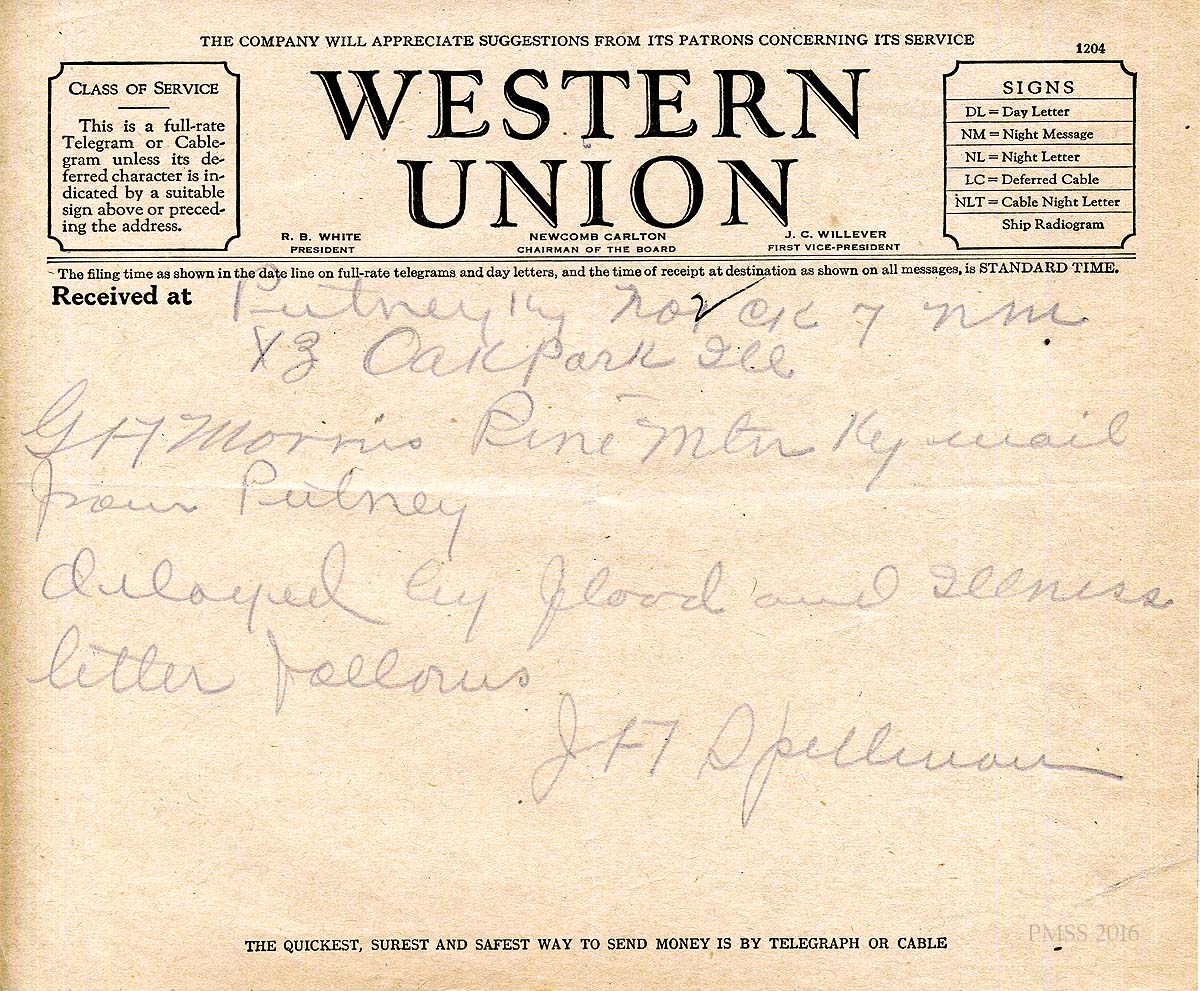 THE COMPANY WILL APPRECIATE SUGGESTIONS FROM ITS PATRONS CONCERNING ITS SERVICE
1204
CLASS OF SERVICE
This is a full-rate
Telegram or Cable-
gram unless its de-
ferred character is in-
dicated by a suitable
sign above or preced-
ing the address.
WESTERN
UNION
R. B. WHITE
PRESIDENT
NEWCOMB CARLTON
CHAIRMAN OF THE BOARD
J. C. WILLEVER
FIRST VICE-PRESIDENT
SIGNS
DL = Day Letter
NM = Night Message
NL = Night Letter
LC = Deferred Cable
NLT = Cable Night Letter
Ship Radiogram
The filing time as shown in the date line on full-rate telegrams and day letters, and the time of receipt at destination as shown on all messages, is STANDARD TIME.
Received at Putney Ky ck 7 nm
Oak Park Ill
G H Morris Pine Mtn Ky mail
from Putney
delayed by flood and Illness
letter follows
J H Spellman
THE QUICKEST, SUREST AND SAFEST WAY TO SEND MONEY IS BY TELEGRAPH OR CABLE
PMSS 2016